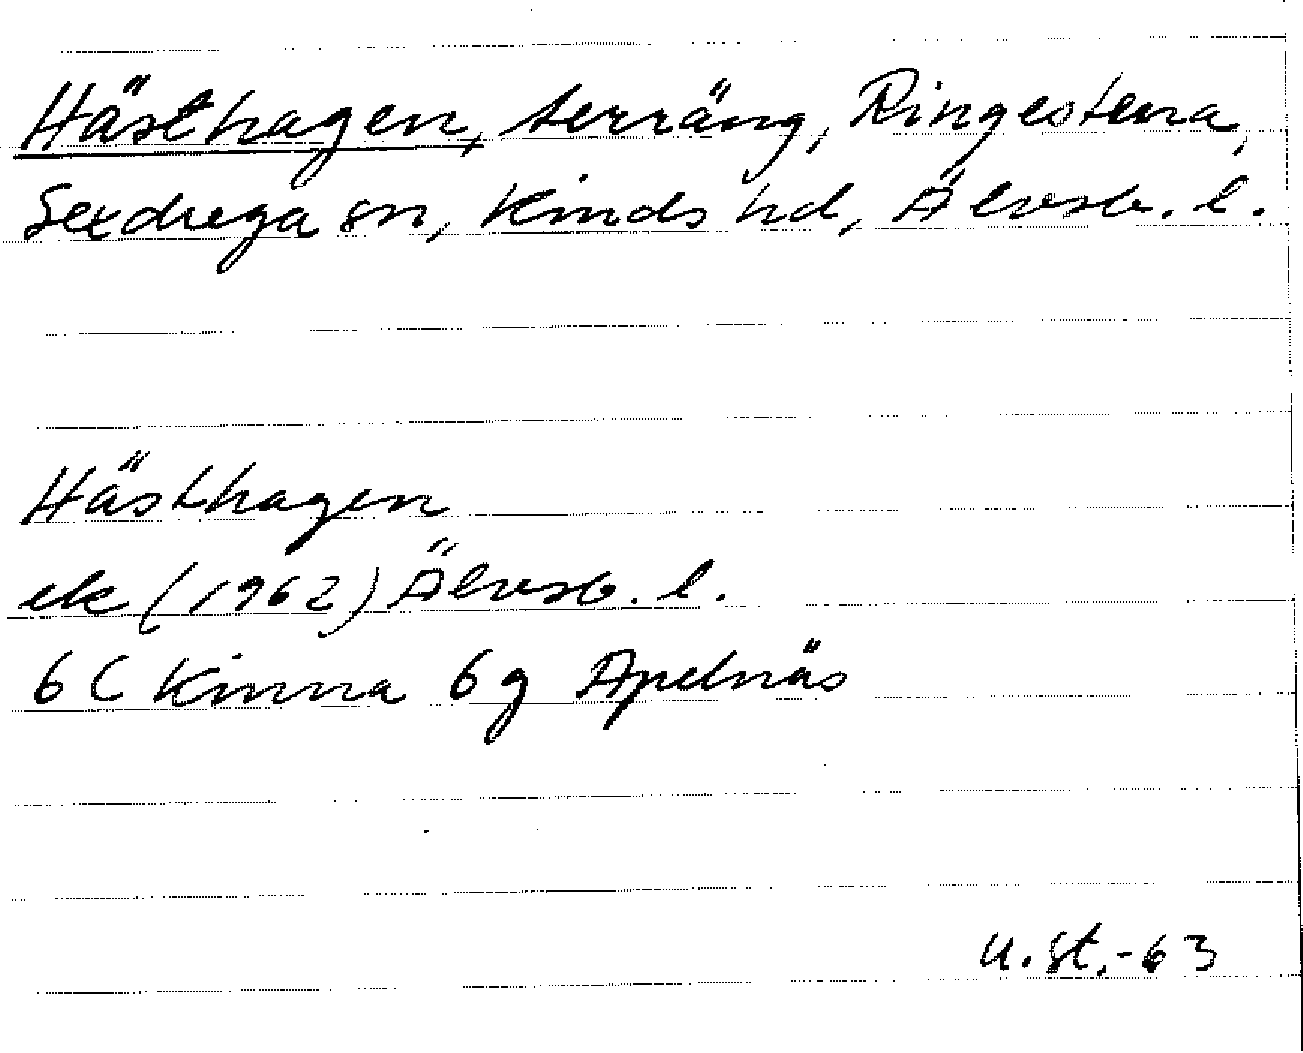 Hästhagen, terräng, Ringestena,
Sexdrega sn, Kinds hd, Älvsb. l.
Hästhagen
ek (1962) Älvsb. l.
6 C Kinna 6 g Apelnäs
u. St. -63